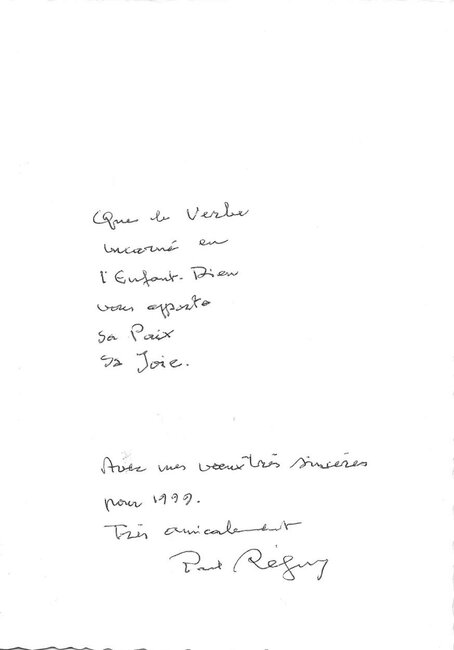 Que le Verbe
incarné en
l'Enfant-Dieu
vous apporte
sa Paix
sa Joie.
Avec mes vœux très sincères
pour 1999.
Très amicalement
Paul Régny